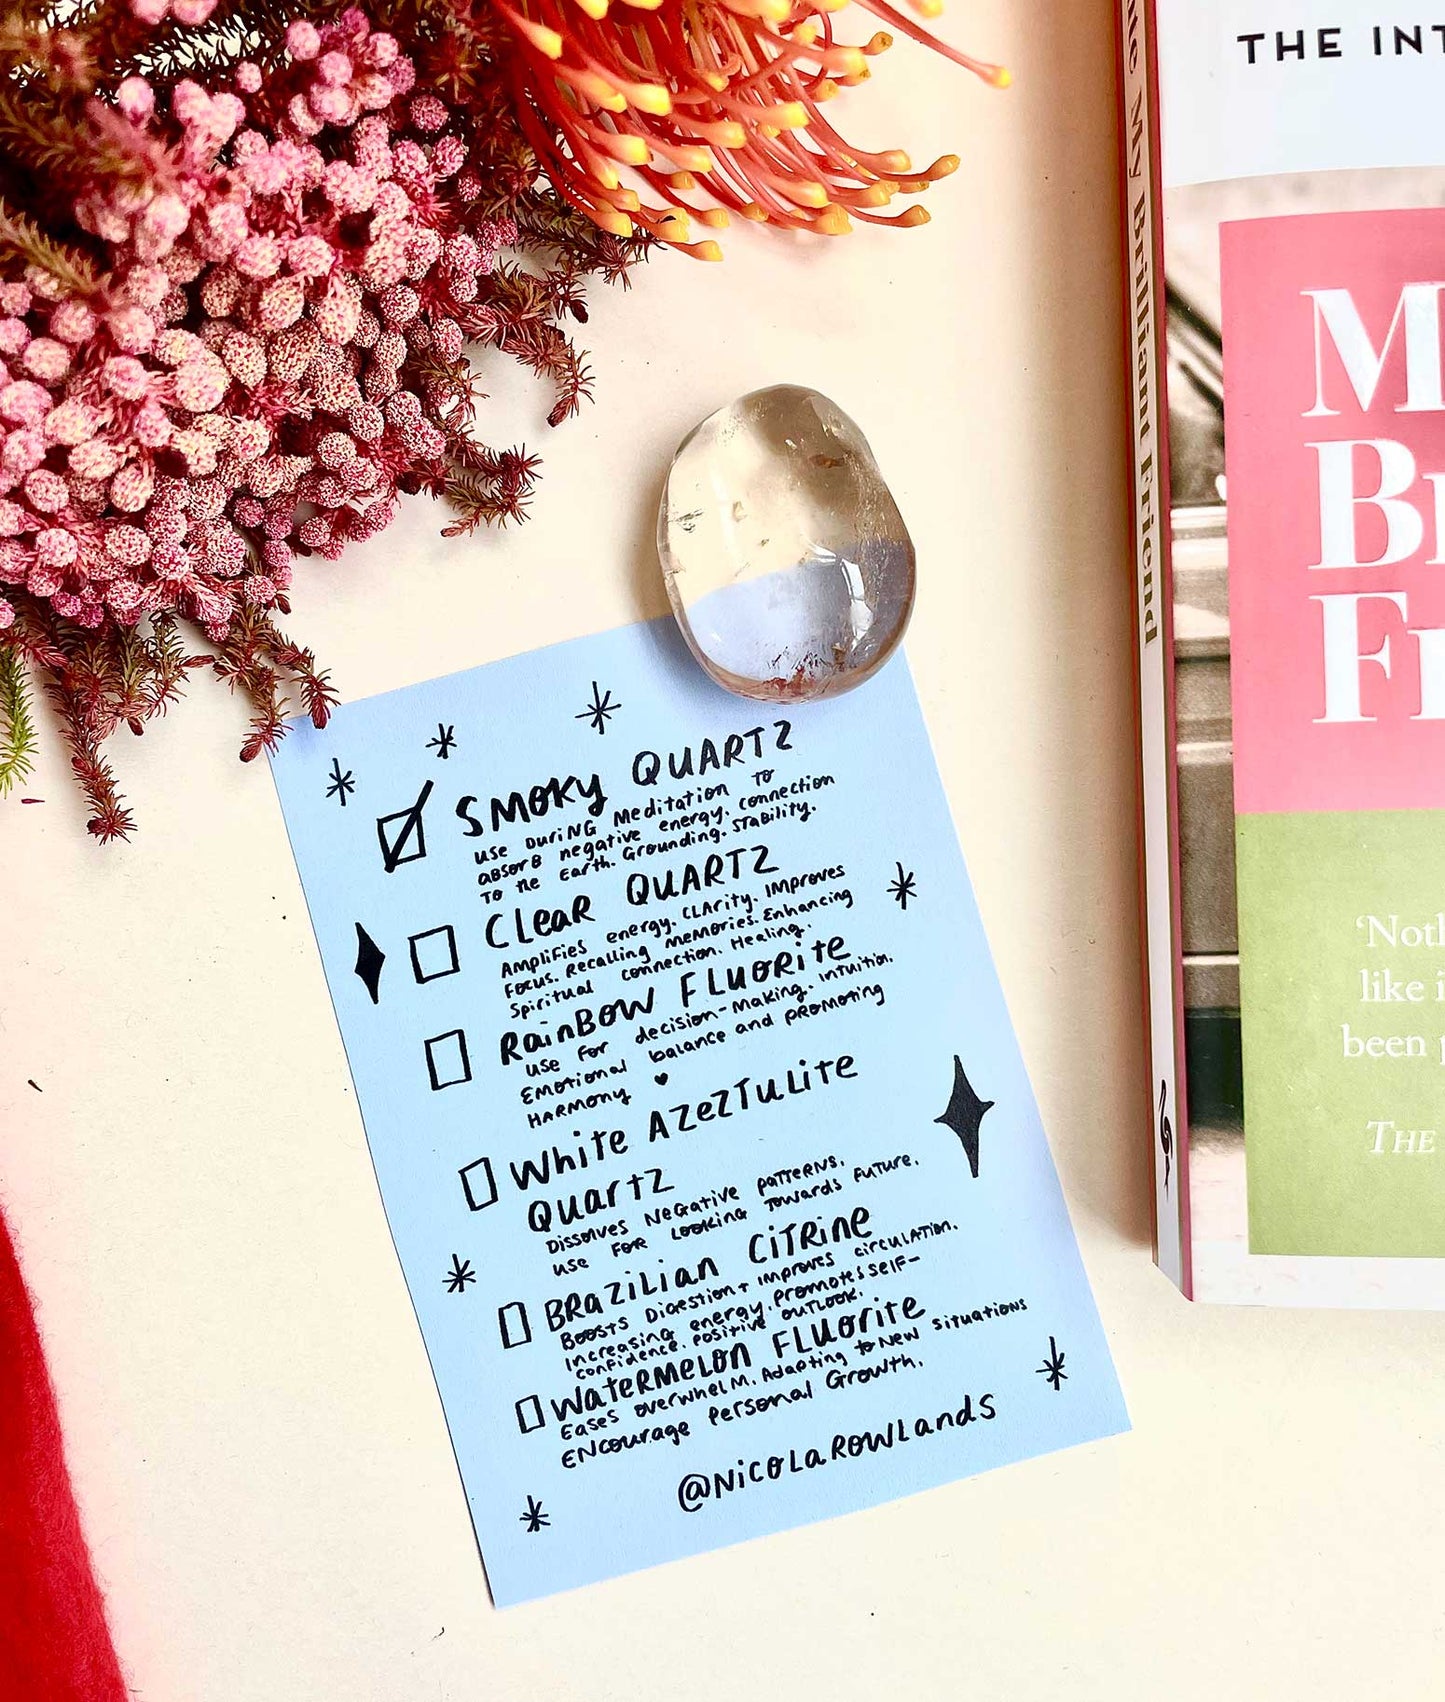 SMOKY QUARTZ
USE DURING MEDITATION TO
ABSORB NEGATIVE ENERGY. CONNECTION
TO THE EARTH. GROUNDING. STABILITY.
CLEAR QUARTZ
AMPLIFIES ENERGY. CLARITY. IMPROVES
FOCUS. RECALLING MEMORIES. ENHANCING
SPIRITUAL CONNECTION. HEALING.
RAINBOW FLUORITE
USE FOR DECISION-MAKING. INTUITION.
EMOTIONAL BALANCE AND PROMOTING
HARMONY ♥
WHITE AZEZTULITE
QUARTZ
DISSOLVES NEGATIVE PATTERNS.
USE FOR LOOKING TOWARDS FUTURE.
BRAZILIAN CITRINE
BOOSTS DIGESTION + IMPROVES CIRCULATION.
INCREASING ENERGY. PROMOTES SELF-
CONFIDENCE. POSITIVE OUTLOOK.
WATERMELON FLUORITE
EASES OVERWHELM. ADAPTING TO NEW SITUATIONS
ENCOURAGE PERSONAL GROWTH.
@NICOLAROWLANDS
My Brilliant Friend
THE INT
M
BR
FR
'Noth
like i
been p
THE